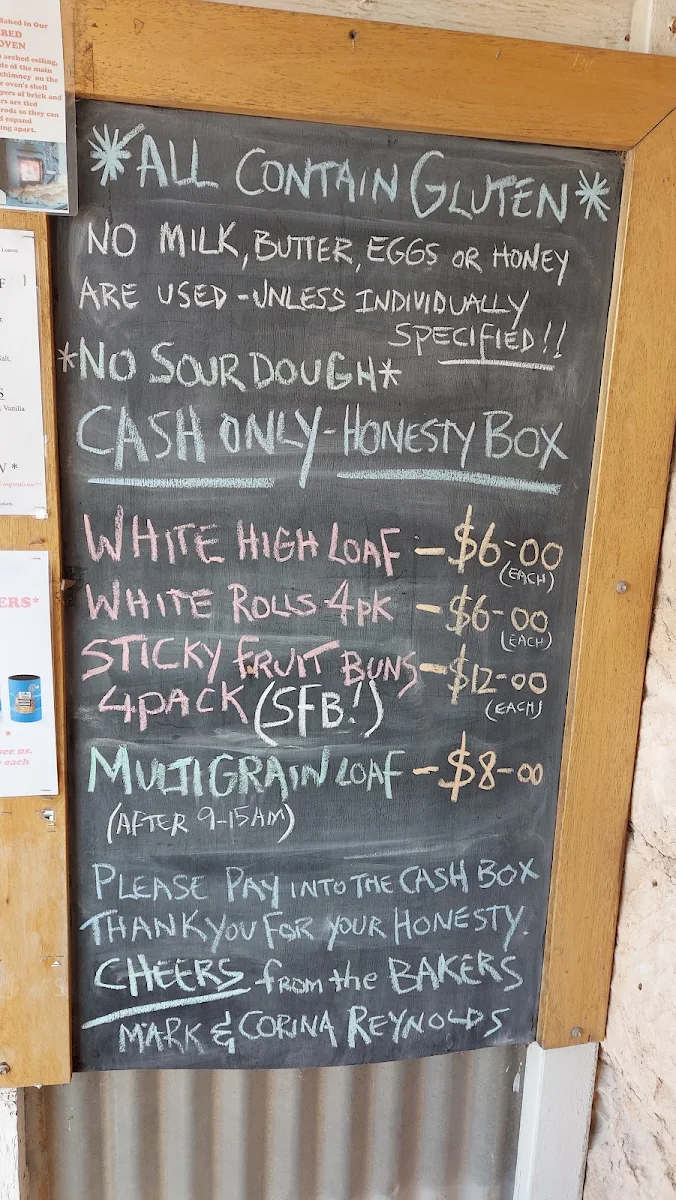 Baked in Our
RED
OVEN
arched ceiling,
de of the main
chimney on the
e oven's shell
yers of brick and
rs are tied
rods so they can
d expand
ng apart.
Vanilla
ERS*
see us.
each
*ALL CONTAIN GLUTEN*
NO MILK, BUTTER, EGGS OR HONEY
ARE USED - UNLESS INDIVIDUALLY
SPECIFIED!!
*NO SOUR DOUGH*
CASH ONLY - HONESTY BOX
WHITE HIGH LOAF - $6-00
(EACH)
WHITE ROLLS 4PK - $6-00
(EACH)
STICKY FRUIT BUNS - $12-00
4PACK (SFB!) (EACH)
MULTIGRAIN LOAF - $8-00
(AFTER 9-15AM)
PLEASE PAY INTO THE CASH BOX
THANKYOU FOR YOUR HONESTY.
CHEERS from the BAKERS
MARK & CORINA REYNOLDS